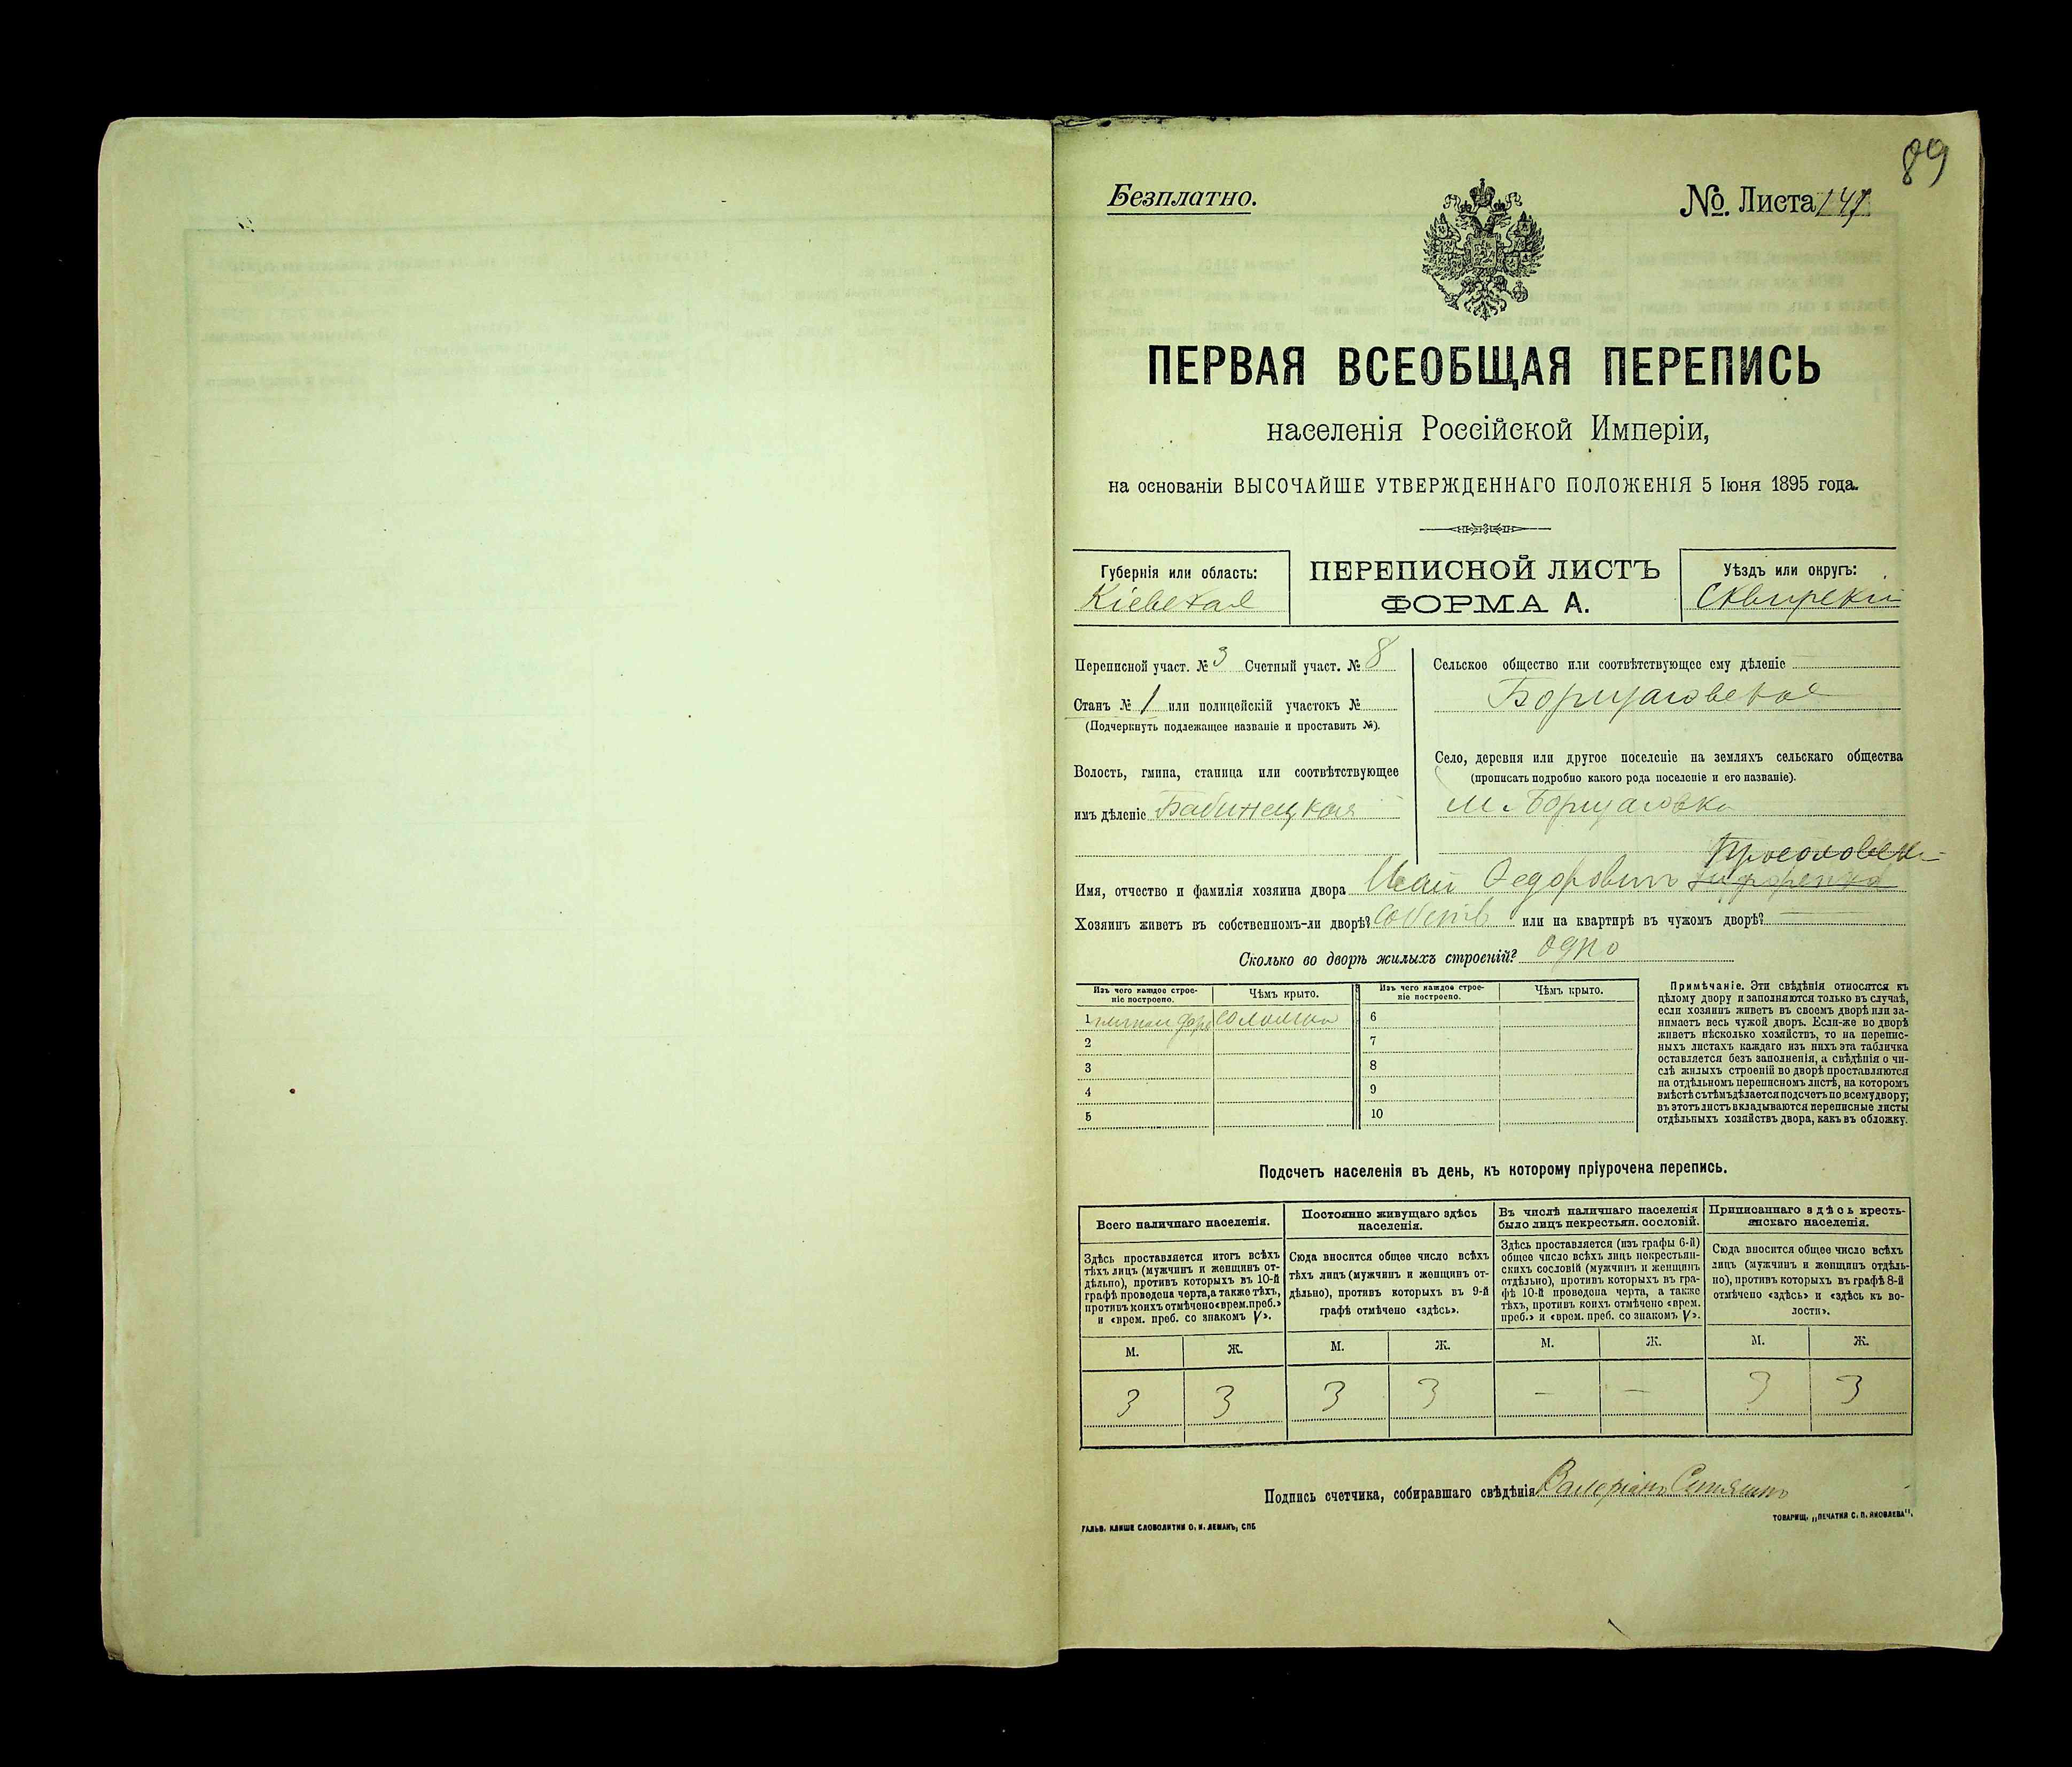 89
Безплатно.
№. Листа 147
ПЕРВАЯ ВСЕОБЩАЯ ПЕРЕПИСЬ
населенія Россійской Имперіи,
на основаніи ВЫСОЧАЙШЕ УТВЕРЖДЕННАГО ПОЛОЖЕНІЯ 5 Іюня 1895 года.
Губернія или область:
Кіевская
ПЕРЕПИСНОЙ ЛИСТЪ
ФОРМА А.
Уѣздъ или округъ:
Сквирскій
Переписной участ. № 3 Счетный участ. № 8
Станъ № 1 или полицейскій участокъ №
(Подчеркнуть подлежащее названіе и проставить №).
Волость, гмина, станица или соотвѣтствующее
имъ дѣленіе Бабинецкая
Сельское общество или соотвѣтствующее ему дѣленіе
Борщаговское
Село, деревня или другое поселеніе на земляхъ сельскаго общества
(прописать подробно какого рода поселеніе и его названіе).
м. Борщаговка
Имя, отчество и фамилія хозяина двора Федоровичъ
Хозяинъ живетъ въ собственномъ-ли дворѣ? Собств или на квартирѣ въ чужомъ дворѣ?
Сколько во дворѣ жилыхъ строеній? одно
Изъ чего каждое строе-
ніе построено.
Чѣмъ крыто.
Изъ чего каждое строе-
ніе построено.
Чѣмъ крыто.
1 соломою
2
3
4
5
6
7
8
9
10
Примѣчаніе. Эти свѣдѣнія относятся къ
цѣлому двору и заполняются только въ случаѣ,
если хозяинъ живетъ въ своемъ дворѣ или за-
нимаетъ весь чужой дворъ. Если-же во дворѣ
живетъ нѣсколько хозяйствъ, то на перепис-
ныхъ листахъ каждаго изъ нихъ эта табличка
оставляется безъ заполненія, а свѣдѣнія о чи-
слѣ жилыхъ строеній во дворѣ проставляются
на отдѣльномъ переписномъ листѣ, на которомъ
вмѣстѣ съ тѣмъ дѣлается подсчетъ по всему двору;
въ этотъ листъ вкладываются переписные листы
отдѣльныхъ хозяйствъ двора, какъ въ обложку.
Подсчетъ населенія въ день, къ которому пріурочена перепись.
Всего наличнаго населенія.
Здѣсь проставляется итогъ всѣхъ
тѣхъ лицъ (мужчинъ и женщинъ от-
дѣльно), противъ которыхъ въ 10-й
графѣ проведена черта, а также тѣхъ,
противъ коихъ отмѣчено «врем. преб.»
и «врем. преб. со знакомъ V».
Постоянно живущаго здѣсь
населенія.
Сюда вносится общее число всѣхъ
тѣхъ лицъ (мужчинъ и женщинъ от-
дѣльно), противъ которыхъ въ 9-й
графѣ отмѣчено «здѣсь».
Въ числѣ наличнаго населенія
было лицъ некрестьян. сословій.
Здѣсь проставляется (изъ графы 6-й)
общее число всѣхъ лицъ некрестьян-
скихъ сословій (мужчинъ и женщинъ
отдѣльно), противъ которыхъ въ гра-
фѣ 10-й проведена черта, а также
тѣхъ, противъ коихъ отмѣчено «врем.
преб.» и «врем. преб. со знакомъ V».
Приписаннаго здѣсь кресть-
янскаго населенія.
Сюда вносится общее число всѣхъ
лицъ (мужчинъ и женщинъ отдѣль-
но), противъ которыхъ въ графѣ 8-й
отмѣчено «здѣсь» и «здѣсь къ во-
лости».
М. Ж. М. Ж. М. Ж. М. Ж.
3 3 3 3 — — 3 3
Подпись счетчика, собиравшаго свѣдѣнія Валеріанъ
ГАЛЬВ. КЛИШЕ СЛОВОЛИТНИ О. И. ЛЕМАНЪ, СПБ
ТОВАРИЩ. „ПЕЧАТНЯ С. П. ЯКОВЛЕВА".